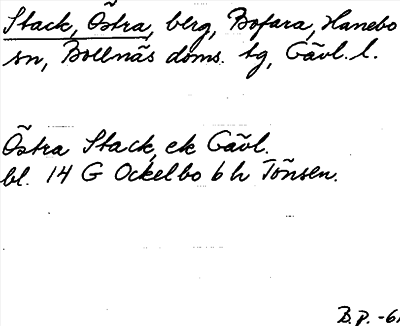 Stack, Östra, berg, Bofara, Hanebo
sn, Bollnäs doms. tg, Gävl. l.
Östra Stack, ek Gävl.
bl. 14 G Ockelbo b h Tönsen.
B.P. -61